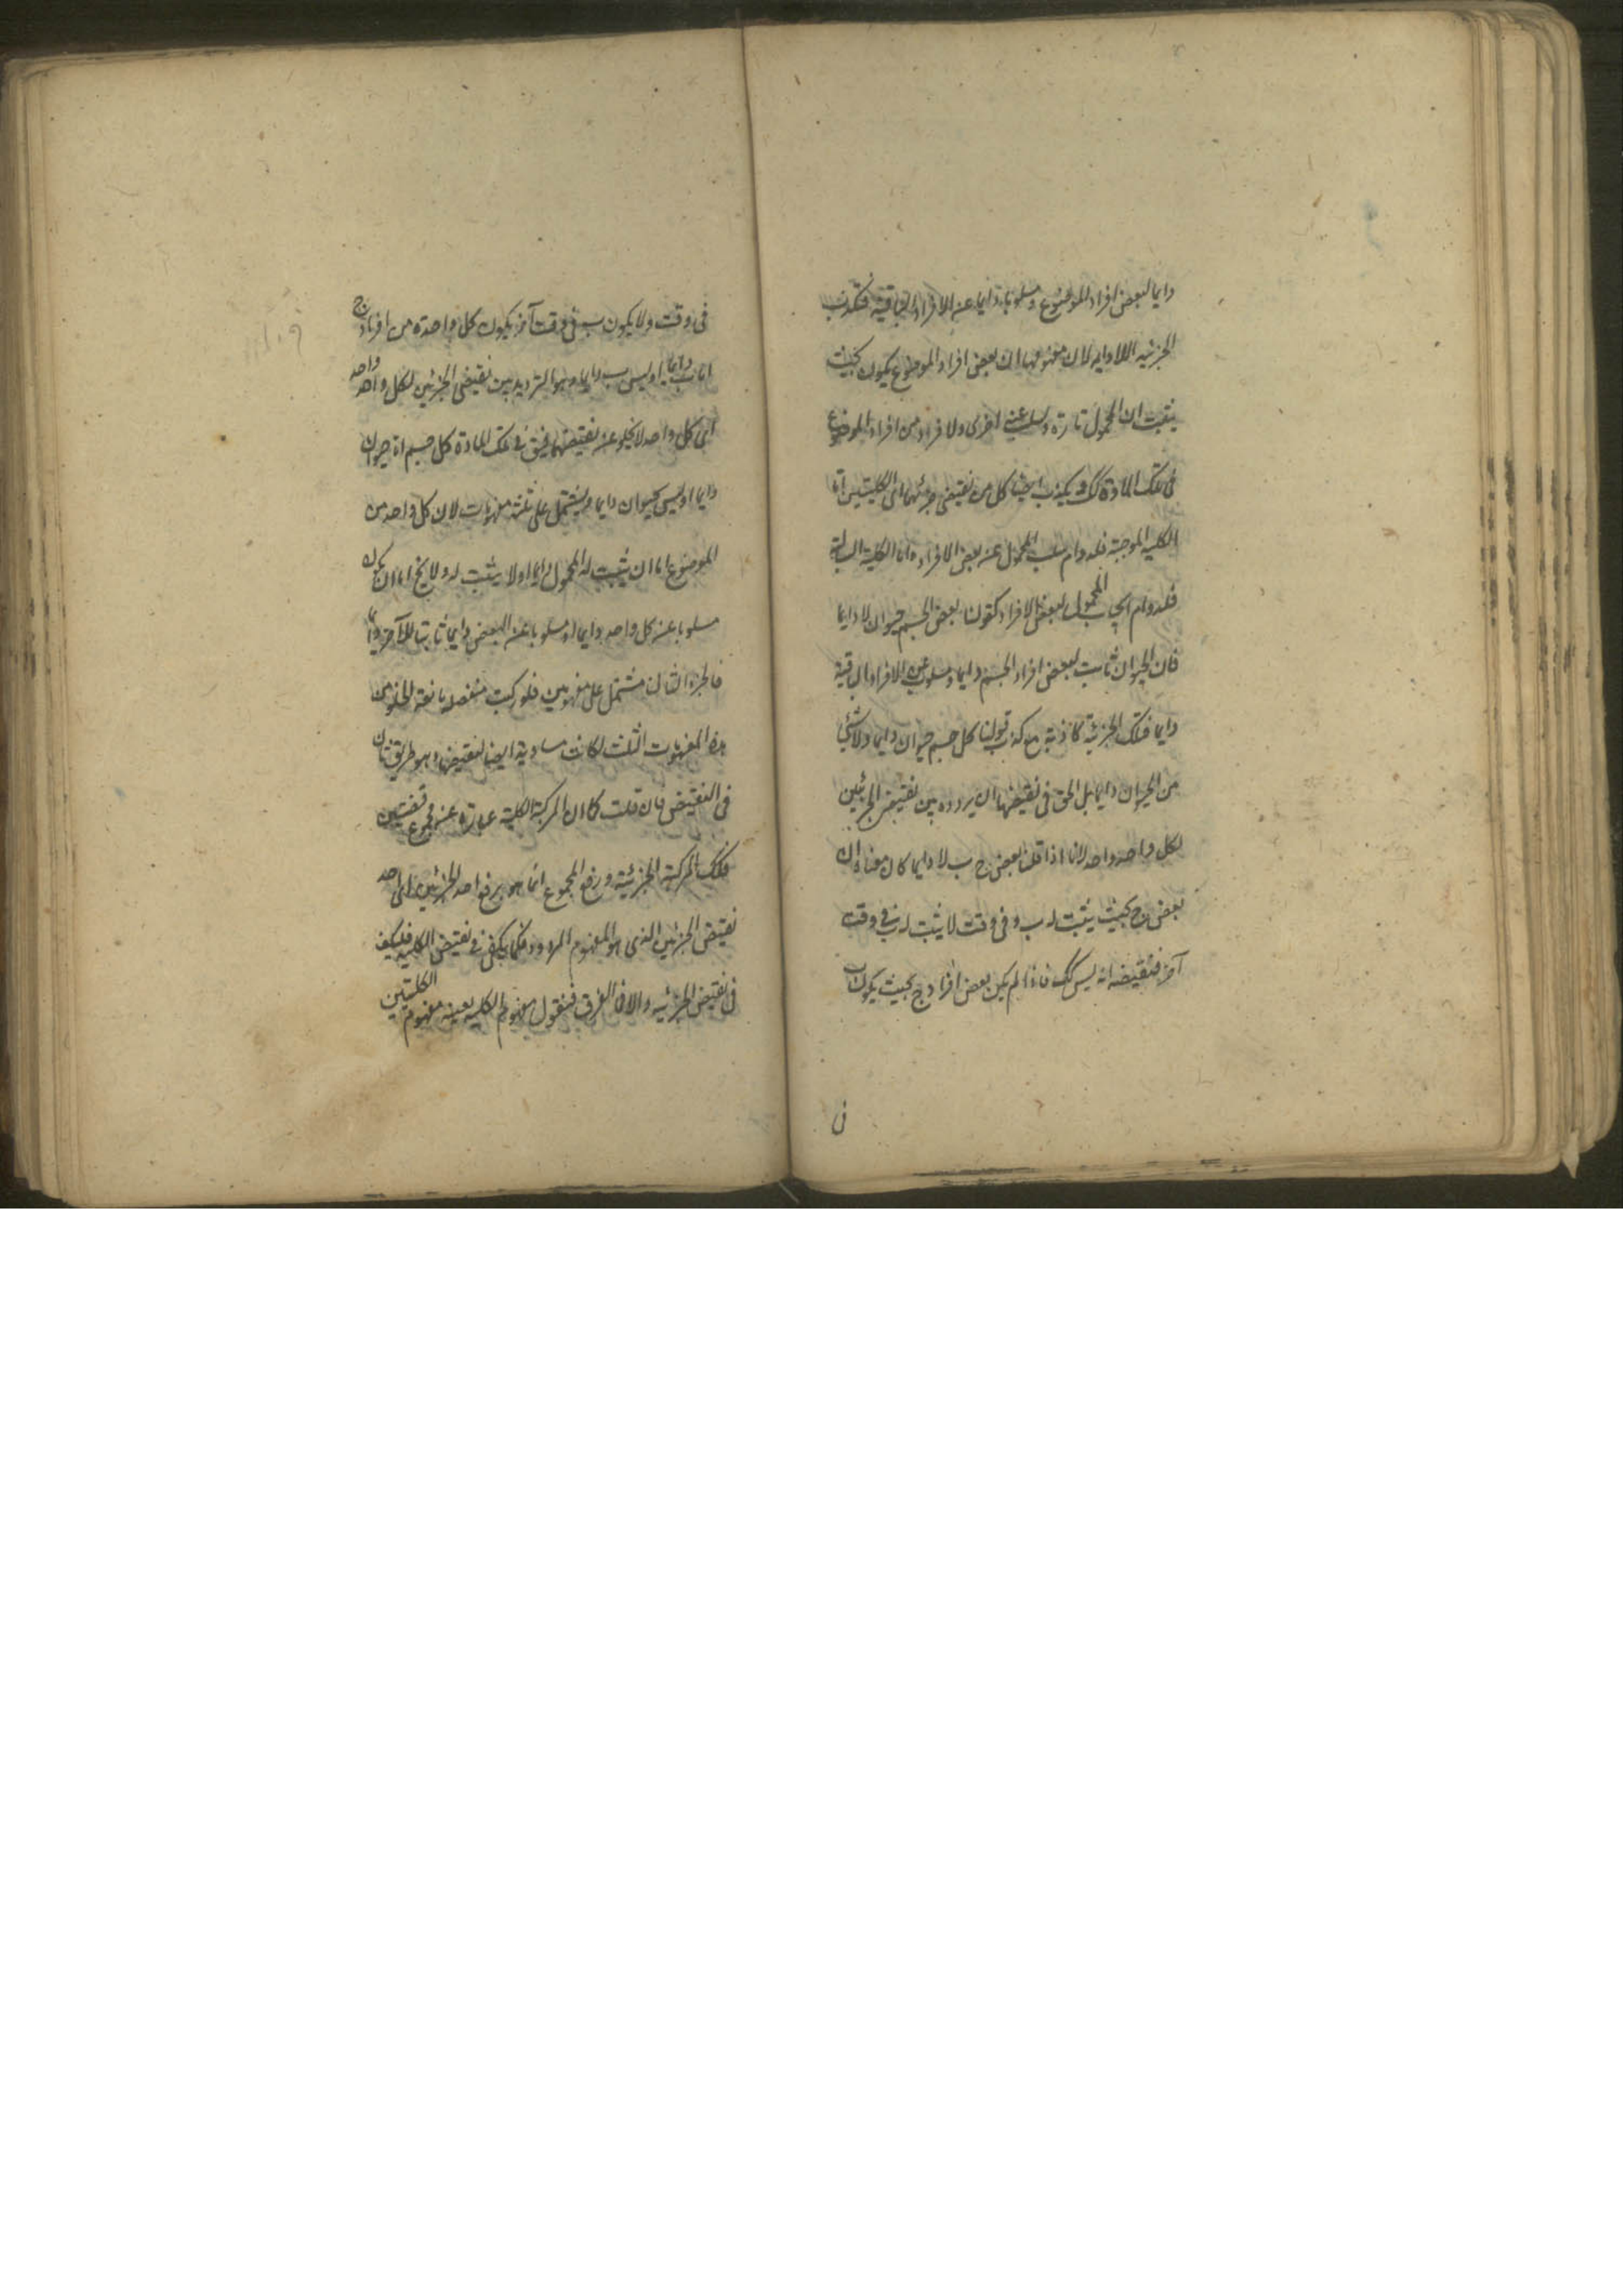 دايما لبعض افراد الموضوع ومسلوبا دايما عن الافراد الباقية فتكذب
الجزئيه اللا دايمه لان مفهومها ان بعض افراد الموضوع يكون بحيث
يثبت ان المحمول تارة ويسلب عنه اخرى ولا فرد من افراد الموضوع
فى تلك المادة كك ويكذب ايضا كل من نقيضى جزئيها اى الكليتين اما
الكليه الموجبة فلدوام سلب المحمول عن بعض الافراد واما الكلية السالبة
فلدوام ايجاب المحمول لبعض الافراد كقولنا بعض الجسم حيوان لا دايما
فان الحيوان ثابت لبعض افراد الجسم دايما ومسلوب عن الافراد الباقية
دايما فتلك الجزئية كاذبة مع كذب قولنا كل جسم حيوان دايما ولا شئ
من الحيوان دايما بل الحق فى نقيضها ان يردد بين نقيضى الجزئين
لكل واحد واحد لانا اذا قلنا بعض ج ب لا دايما كان معناه ان
بعض ج بحيث يثبت له ب و فى وقت لا يثبت له ب فى وقت
آخر فنقيضه انه ليس كك فاذا لم يكن بعض افراد ج بحيث يكون ب
فى
فى وقت ولا يكون ب فى وقت آخر يكون كل واحدة من افراد ج
اما ب دايما او ليس ب دايما وهو الترديد بين نقيضى الجزئين لكل واحد واحد
اى كل واحد لا يخلو عن نقيضهما فيق فى تلك المادة كل جسم اما حيوان
دايما او ليس بحيوان دايما ويشتمل على ثلثة مفهومات لان كل واحد من
الموضوع اما ان يثبت له المحمول دايما او لا يثبت له ولا يخ اما ان يكون
مسلوبا عن كل واحد دايما او مسلوبا عن البعض دايما ثابتا للآخر دايما
فالجزء الثانى مشتمل على مفهومين فلو ركبت منفصله مانعة الخلو من
هذه المفهومات الثلث لكانت مساوية ايضا لنقيضها وهو طريق ثان
فى النقيض فان قلت كما ان المركبة الكلية عبارة عن مجموع قضيتين
فكك المركبة الجزئية ورفع المجموع انما هو برفع احد الجزئين اى احد
نقيضى الجزئين الذى هو المفهوم المردد فكما يكفى فى نقيض الكليه فليكف
فى نقيض الجزئيه والا فما الفرق فنقول مفهوم الكليه بعينه مفهوم الكليتين